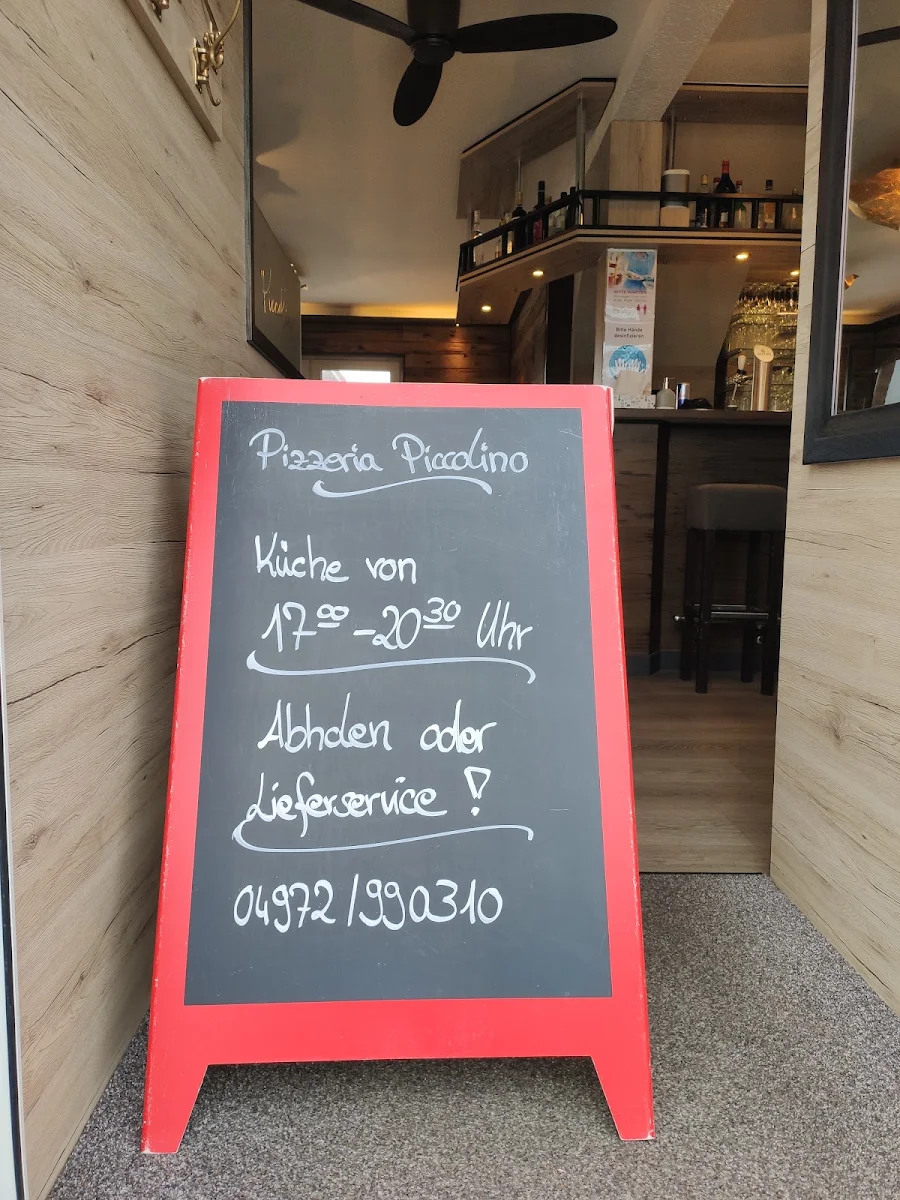 Pizzeria Piccolino
Küche von
17⁰⁰-20³⁰ Uhr
Abholen oder
Lieferservice!
04972/990310
Bitte Hände
desinfizieren